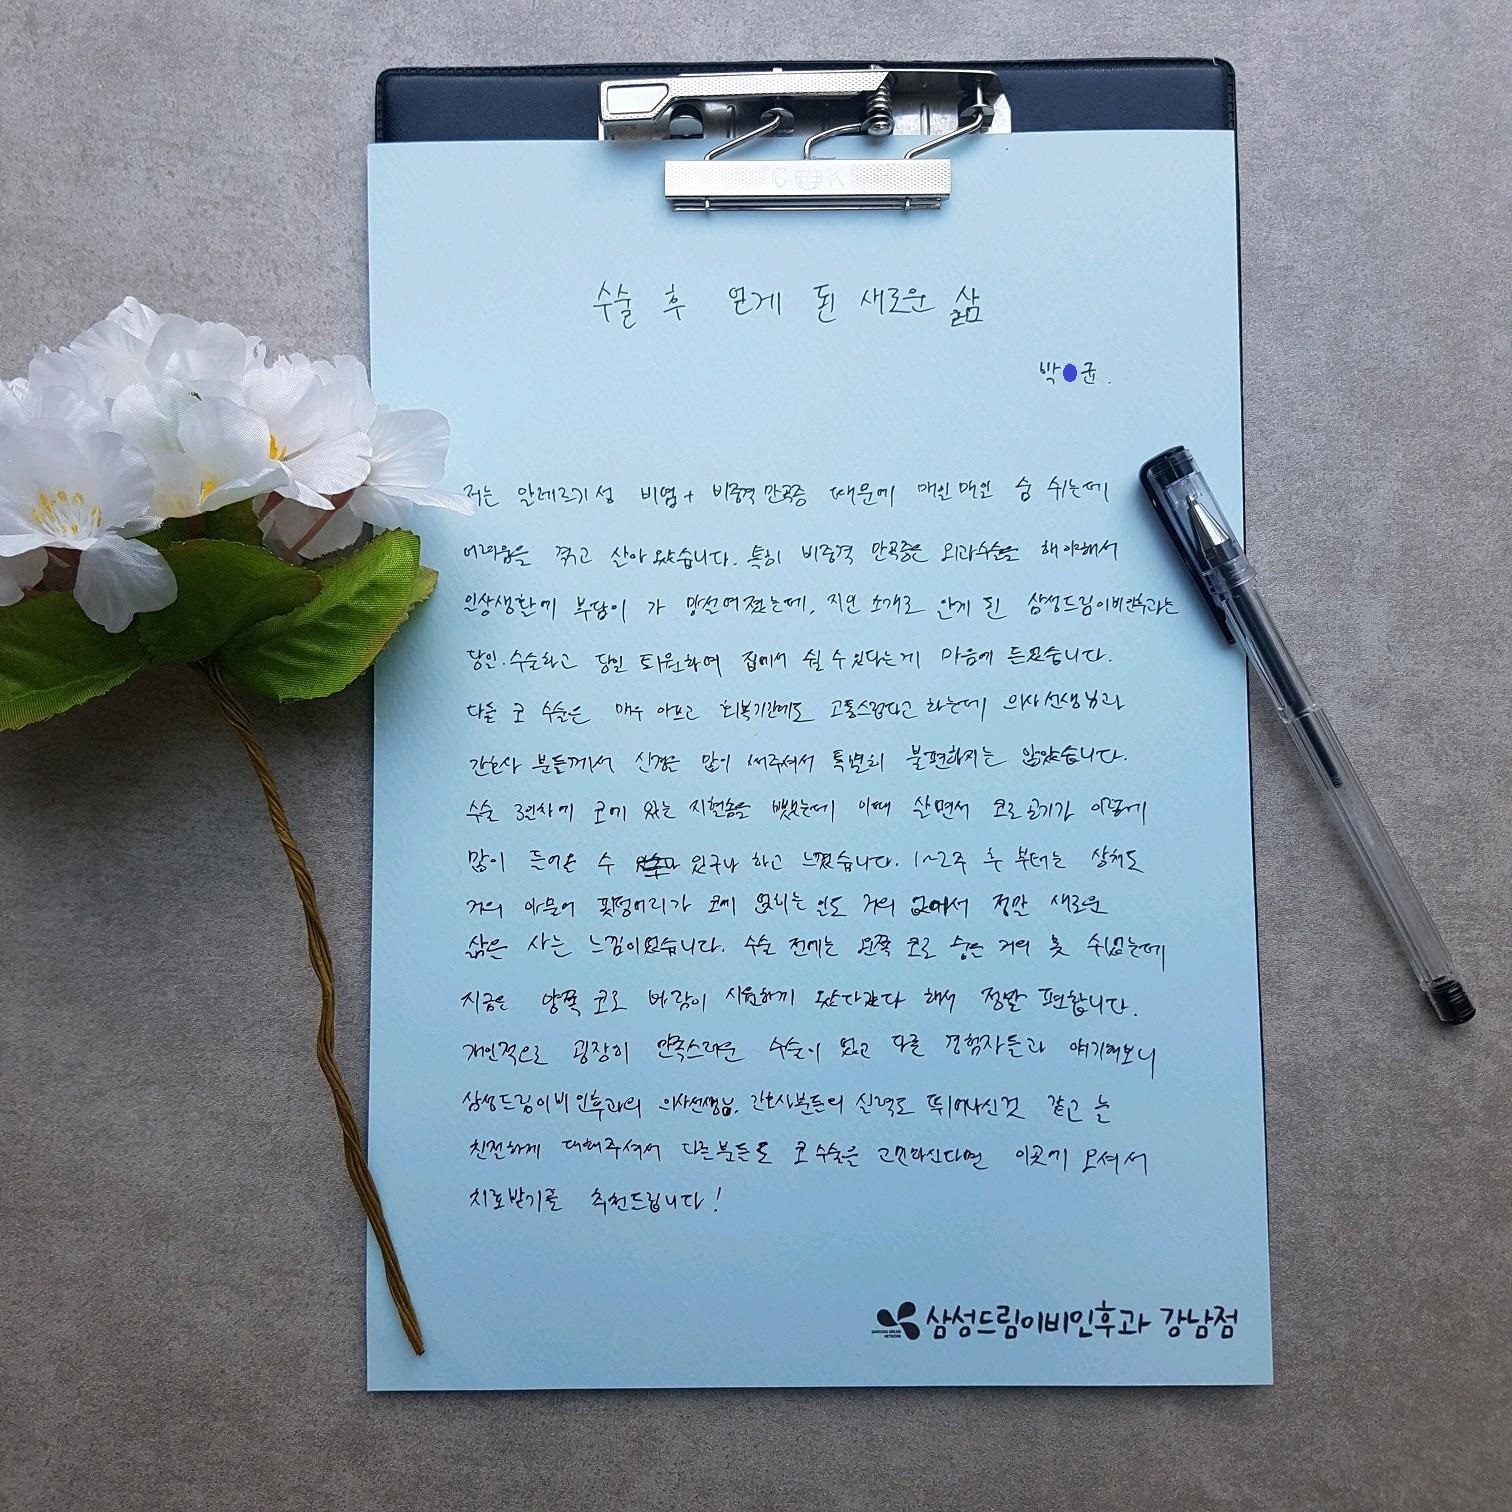 COK
수술 후 얻게 된 새로운 삶
박 균.
저는 알레르기성 비염 + 비중격 만곡증 때문에 매일매일 숨 쉬는데
어려움을 겪고 살아 왔습니다. 특히 비중격 만곡증은 외과수술을 해야해서
일상생활에 부담이 가 망설여졌는데, 지인 소개로 알게 된 삼성드림이비인후과는
당일 수술하고 당일 퇴원하여 집에서 쉴 수 있다는게 마음에 들었습니다.
다들 코 수술은 매우 아프고 회복기간에도 고통스럽다고 하는데 의사선생님과
간호사 분들께서 신경을 많이 써주셔서 특별히 불편하지는 않았습니다.
수술 3일차에 코에 있는 지혈솜을 뺐는데 이때 살면서 코로 공기가 이렇게
많이 들어올 수 있구나 하고 느꼈습니다. 1~2주 후 부터는 상처도
거의 아물어 핏덩어리가 코에 맺히는 일도 거의 없어서 정말 새로운
삶을 사는 느낌이었습니다. 수술 전에는 왼쪽 코로 숨을 거의 못 쉬었는데
지금은 양쪽 코로 바람이 시원하게 왔다갔다 해서 정말 편합니다.
개인적으로 굉장히 만족스러운 수술이 었고 다른 경험자들과 얘기해보니
삼성드림이비인후과의 의사선생님, 간호사분들의 실력도 뛰어나신것 같고 늘
친절하게 대해주셔서 다른분들도 코 수술을 고민하신다면 이곳에 오셔서
치료받기를 추천드립니다!
SAMSUNG DREAM
NETWORK
삼성드림이비인후과 강남점